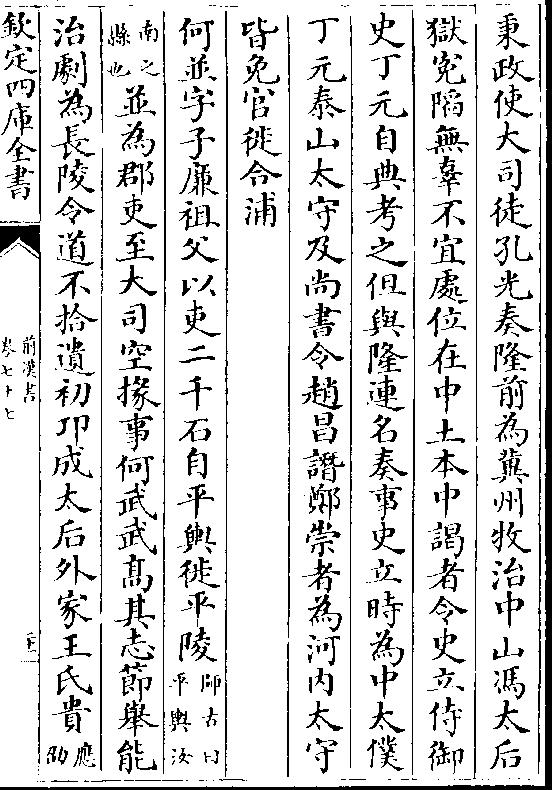 秉政使大司徒孔光奏隆前為冀州牧治中山馮太后
獄寃陷無辜不宜處位在中土本中謁者令史立侍御
史丁元自典考之但與隆連名奏事史立時為中太僕
丁元泰山太守及尚書令趙昌譖鄭崇者為河内太守
皆免官徙合浦
何並字子廉祖父以吏二千石自平輿徙平陵師古曰平輿汝
南之縣也並為郡吏至大司空掾事何武武髙其志節舉能
治劇為長陵令道不拾遺初卭成太后外家王氏貴應劭
欽定四庫全書
前漢書
卷七十七